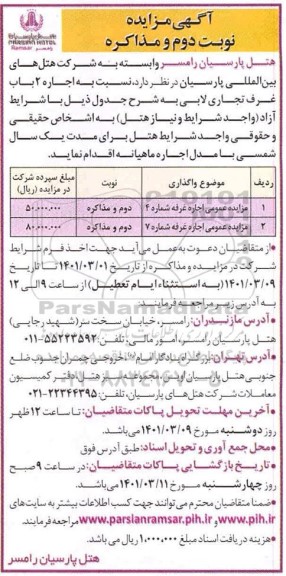 آگهی مزایده
نوبت دوم و مذاکره
هتل پارسیان رامسر وابسته به شرکت هتل‌های
بین‌المللی پارسیان در نظر دارد، نسبت به اجاره ۲ باب
غرف تجاری لابی به شرح جدول ذیل با شرایط
آزاد (واجد شرایط و نیاز هتل) به اشخاص حقیقی
و حقوقی واجد شرایط هتل برای مدت یک سال
شمسی با مدل اجاره ماهیانه اقدام نماید.
ردیف موضوع واگذاری نوبت مبلغ سپرده شرکت در مزایده (ریال)
۱ مزایده عمومی اجاره غرفه شماره ۴ دوم و مذاکره ۵۰.۰۰۰.۰۰۰
۲ مزایده عمومی اجاره غرفه شماره ۷ دوم و مذاکره ۸۰.۰۰۰.۰۰۰
از متقاضیان دعوت به عمل می‌آید جهت اخذ فرم شرایط
شرکت در مزایده و مذاکره از تاریخ ۱۴۰۱/۰۳/۰۱ تا تاریخ
۱۴۰۱/۰۳/۰۹ (به استثناء ایام تعطیل) از ساعت ۹ الی ۱۲
به آدرس زیر مراجعه فرمایند:
• آدرس مازندران: رامسر، خیابان سخت سر (شهید رجایی)
هتل پارسیان رامسر، امور مالی، تلفن: ۵۵۲۲۳۵۹۲-۰۱۱
• آدرس تهران: بزرگراه یادگار امام خروجی چمران جنوب ضلع
جنوبی هتل پارسیان اوین، مجموعه دفتر کمیسیون
معاملات شرکت هتل‌های پارسیان، تلفن: ۲۲۳۶۴۳۹۵-۰۲۱
• آخرین مهلت تحویل پاکات متقاضیان: تا ساعت ۱۲ ظهر
روز دوشنبه مورخ ۱۴۰۱/۰۳/۰۹ می‌باشد.
• محل جمع آوری و تحویل اسناد: طبق آدرس فوق
• تاریخ بازگشایی پاکات متقاضیان: در ساعت ۹ صبح
روز چهارشنبه مورخ ۱۴۰۱/۰۳/۱۱ می‌باشد.
• ضمنا متقاضیان محترم می‌توانند جهت کسب اطلاعات بیشتر به سایت‌های
www.pih.ir و www.parsianramsar.pih.ir مراجعه فرمایند.
• هزینه دریافت اسناد مبلغ ۱.۰۰۰.۰۰۰ ریال می‌باشد.
هتل پارسیان رامسر